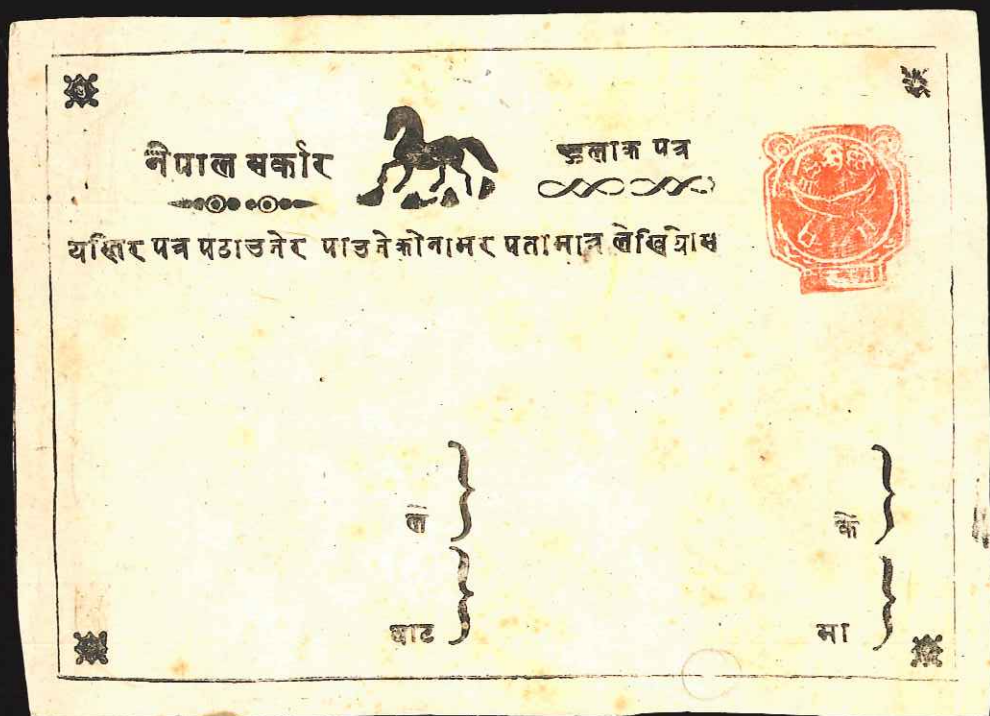 नेपाल सर्कार
हुलाक पत्र
यस्तिर पत्र पठाउनेर पाउनेको नामर पतामात्र लेखियोस
ले
के
बाट
मा